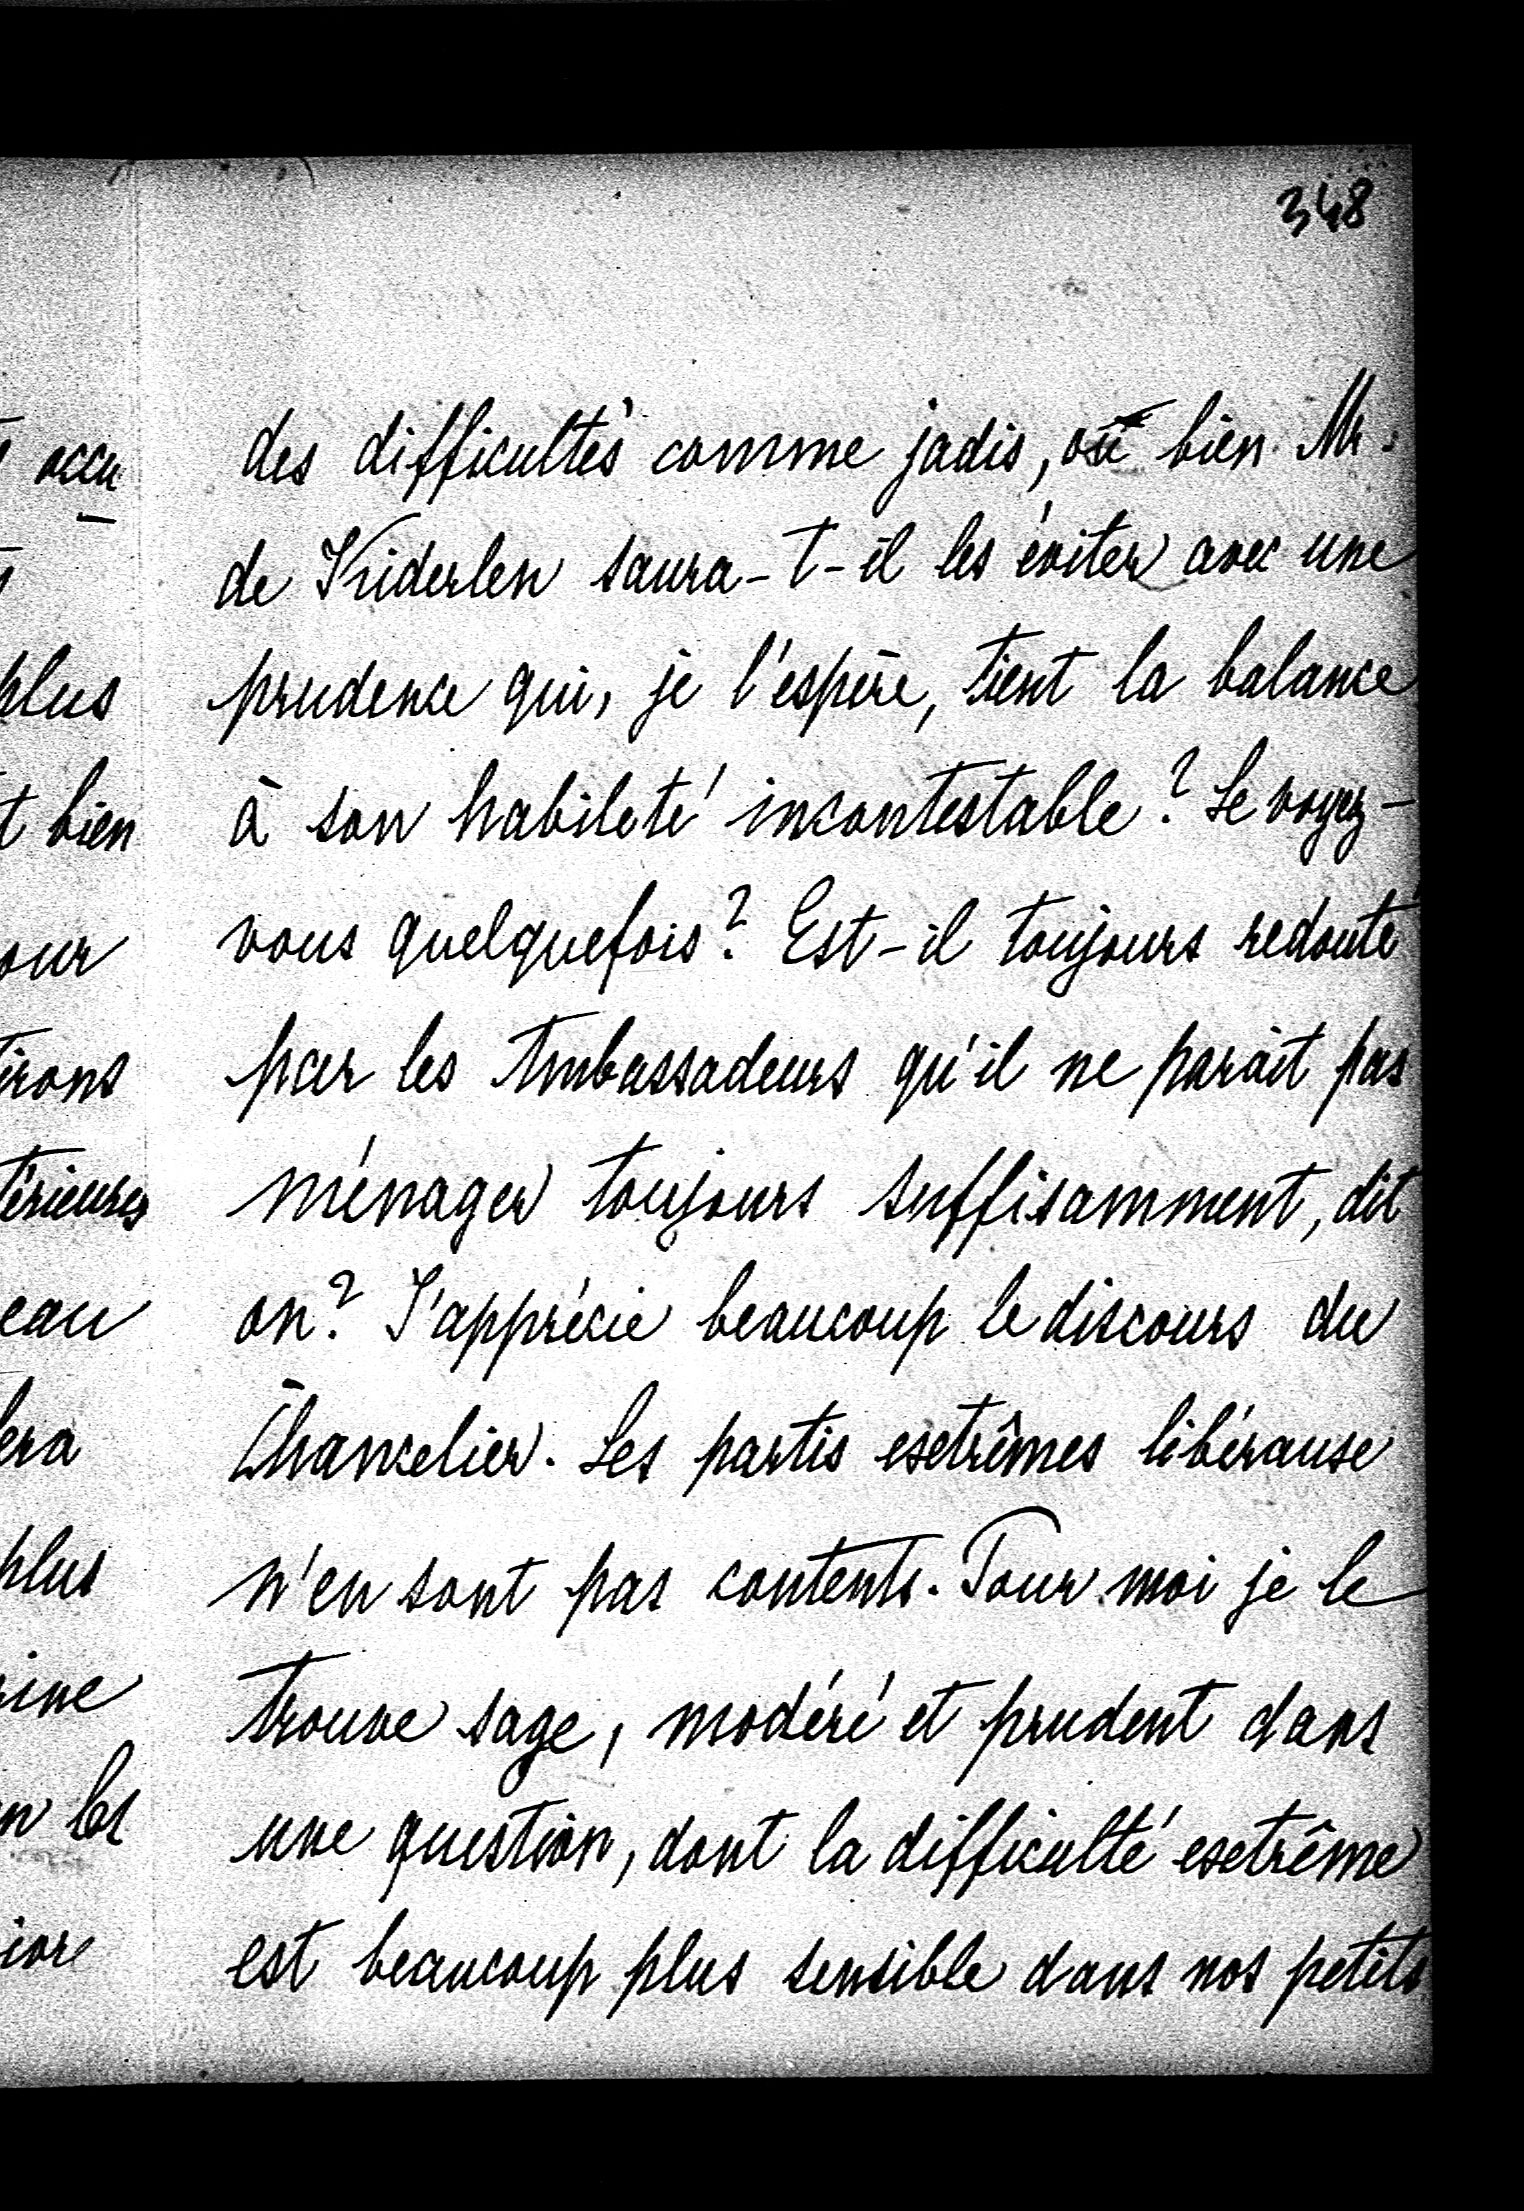 348
des difficultés comme jadis, ou bien Mr.
de Kiderlen saura-t-il les éviter avec une
prudence qui, je l'espère, tient la balance
à son habileté incontestable? Le voyez-
vous quelquefois? Est-il toujours redouté
par les Ambassadeurs qu'il ne parait pas
ménager toujours suffisamment, dit
on? J'apprécie beaucoup le discours du
Chancelier. Les partis extrêmes libéraux
n'en sont pas contents. Pour moi je le
trouve sage, modéré et prudent dans
une question, dont la difficulté extrême
est beaucoup plus sensible dans nos petits
accu
plus
bien
our
irons
térieures
eau
era
plus
ine
les